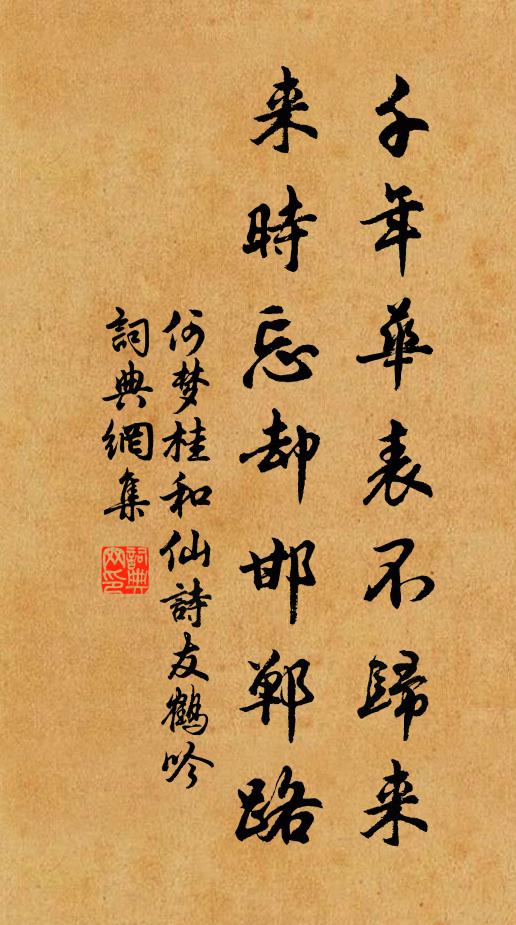 千年華表不歸来
来時忘却邯鄲路
何梦桂和仙詩友鶴吟
詞典網集
詞典网印